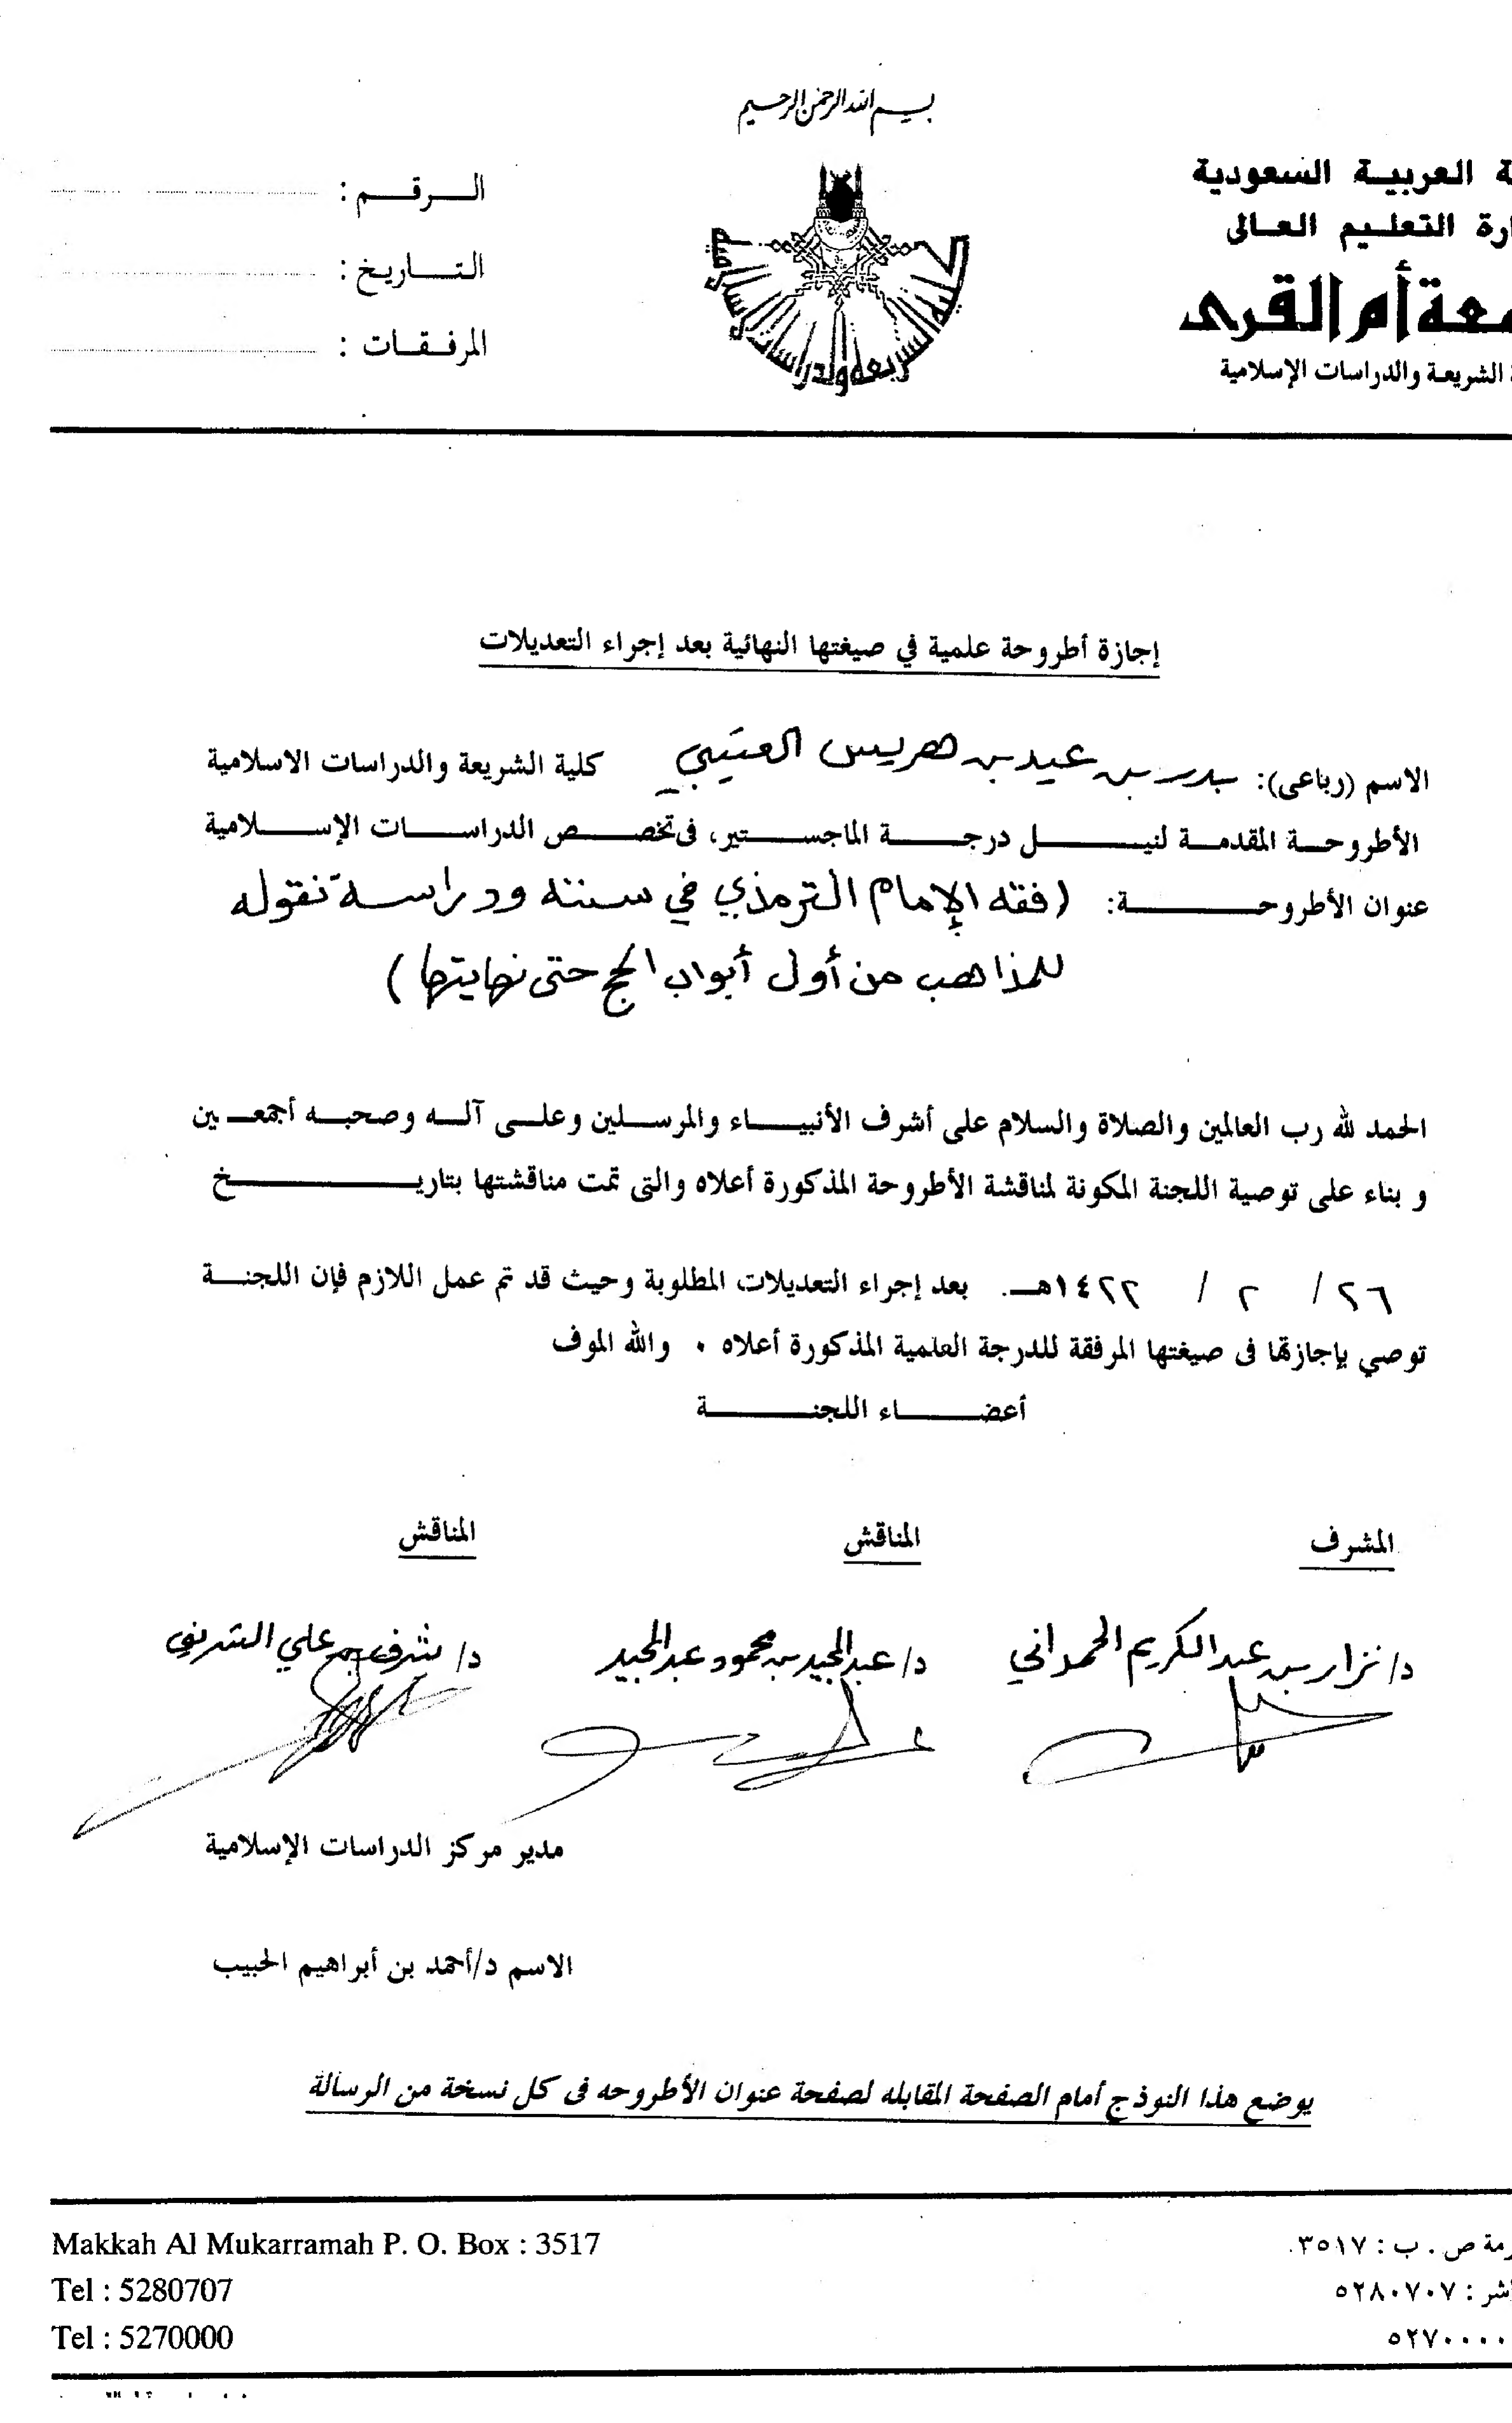 بسم الله الرحمن الرحيم
ة العربية السعودية
ارة التعليم العالى
معة أم القرى
الشريعة والدراسات الإسلامية
الرقم :
التاريخ :
المرفقات :
إجازة أطروحة علمية في صيغتها النهائية بعد إجراء التعديلات
الاسم (رباعى): بدر بن عيد بن هريس العتيبي كلية الشريعة والدراسات الاسلامية
الأطروحة المقدمة لنيل درجة الماجستير، فى تخصص الدراسات الإسلامية
عنوان الأطروحة: (فقه الإمام الترمذي في سننه ودراسة نقوله
للمذاهب من أول أبواب الحج حتى نهايتها)
الحمد لله رب العالمين والصلاة والسلام على أشرف الأنبياء والمرسلين وعلى آله وصحبه أجمعين
و بناء على توصية اللجنة المكونة لمناقشة الأطروحة المذكورة أعلاه والتى تمت مناقشتها بتاريخ
٢٦ / ٢ / ١٤٢٢هـ. بعد إجراء التعديلات المطلوبة وحيث قد تم عمل اللازم فإن اللجنة
توصي بإجازتها فى صيغتها المرفقة للدرجة العلمية المذكورة أعلاه . والله الموف
أعضاء اللجنة
المشرف المناقش المناقش
د/ نزار بن عبد الكريم الحمداني د/ عبد المجيد بن محمود عبد المجيد د/ شرف بن علي الشريف
مدير مركز الدراسات الإسلامية
الاسم د/أحمد بن أبراهيم الحبيب
يوضع هذا النوذج أمام الصفحة المقابله لصفحة عنوان الأطروحه فى كل نسخة من الرسالة
Makkah Al Mukarramah P. O. Box : 3517
Tel : 5280707
Tel : 5270000
رمة ص . ب : ٣٥١٧.
شر : ٥٢٨٠٧٠٧
٥٢٧٠٠٠٠